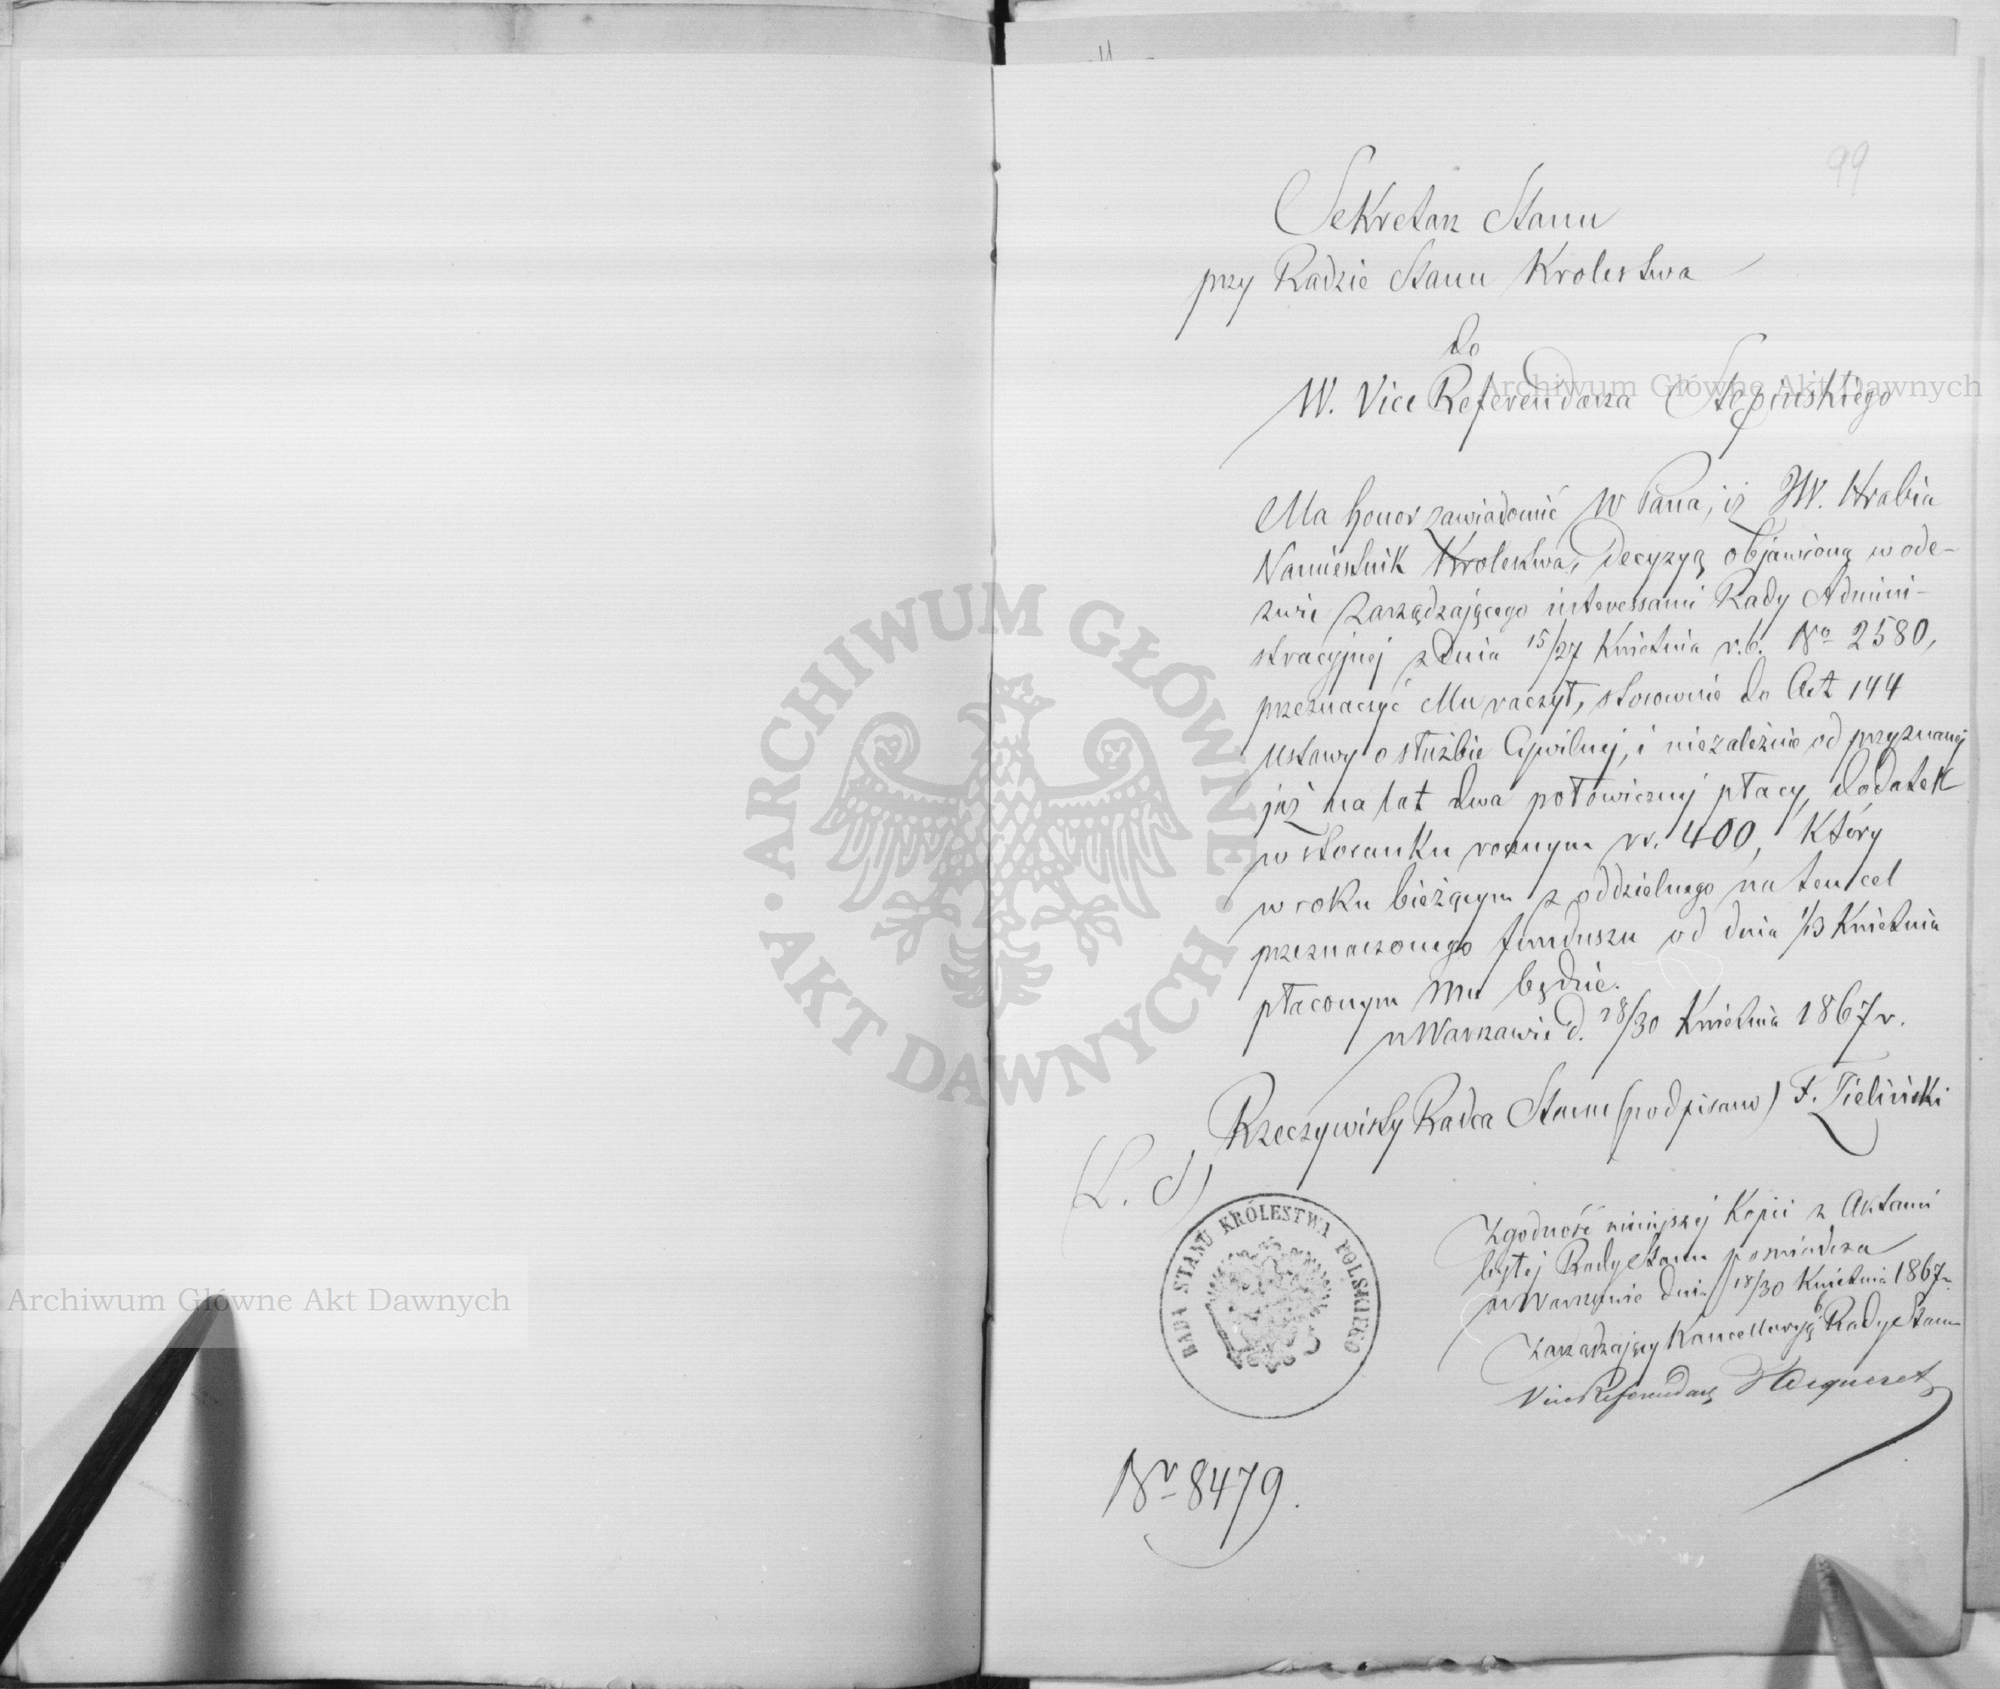 99
Sekretarz Stanu
przy Radzie Stanu Krolestwa
do
W. Vice Referendarza Stępińskiego
Ma honor zawiadomić W Pana, iż JW. Hrabia
Namiestnik Krolestwa, Decyzyą objawioną w ode-
zwie Zarządzającego interessami Rady Admini-
stracyjnej z Dnia 15/27 Kwietnia r.b. No 2580,
przeznaczyć Mu raczył, stosownie do Art 144
Ustawy o służbie Cywilnej, i niezależnie od przyznanej
już na lat dwa połowicznej płacy, dodatek
w stosunku rocznym rs. 400, który
w roku bieżącym z oddzielnego na ten cel
przeznaczonego funduszu od dnia 1/13 Kwietnia
płaconym Mu będzie.
w Warszawie d. 18/30 Kwietnia 1867 r.
Rzeczywisty Radca Stanu (podpisano) F. Zieliński
(L. S)
RADA STANU KRÓLESTWA POLSKIEGO
Zgodność niniejszej Kopii z Aktami
byłej Rady Stanu poświadcza
w Warszawie dnia 18/30 Kwietnia 1867 r.
Zarządzający Kancellaryą b. Rady Stanu
Vice Referendarz
Nr 8479.
ARCHIWUM GŁÓWNE AKT DAWNYCH
Archiwum Główne Akt Dawnych
Archiwum Główne Akt Dawnych